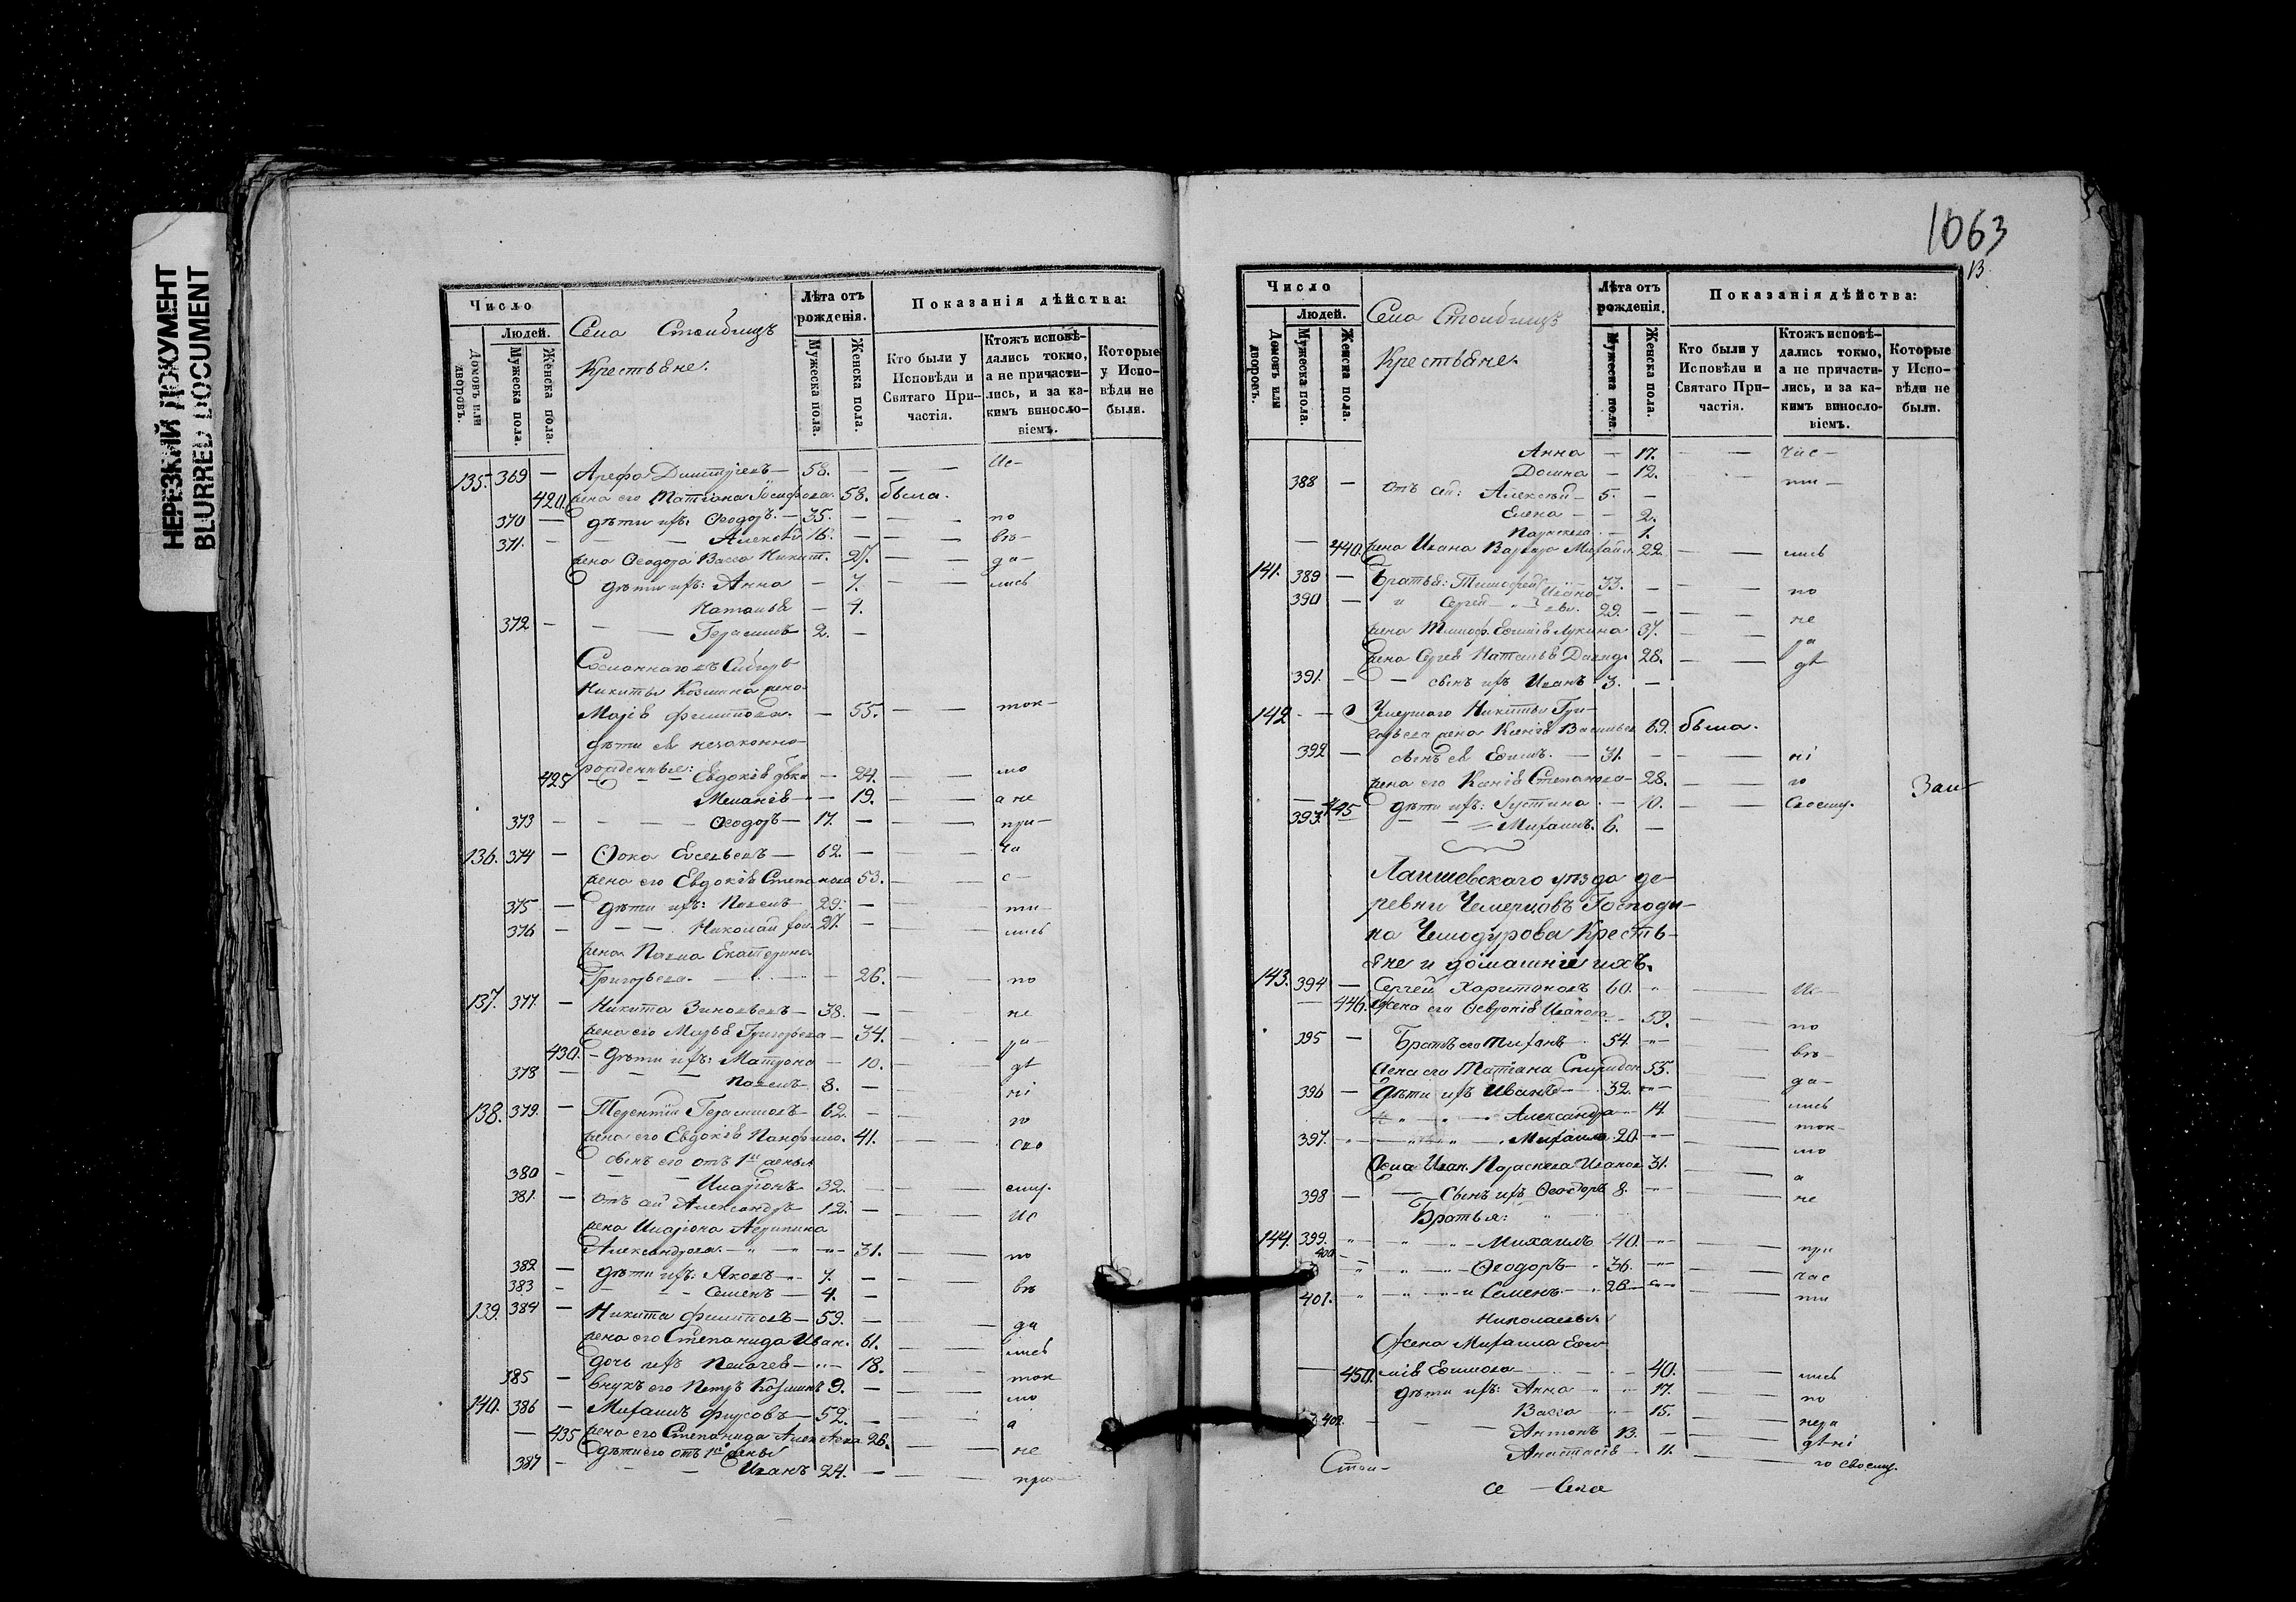 НЕРЕЗКИЙ ДОКУМЕНТ
BLURRED DOCUMENT
Число
Людей.
Домовъ или дворовъ.
Мужеска пола.
Женска пола.
Села Столбищъ
Крестьяне.
Лѣта отъ рожденія.
Мужеска пола.
Женска пола.
Показанія дѣйства:
Кто были у Исповѣди и Святаго Причастія.
Ктожъ исповѣдались токмо, а не причастились, и за какимъ винословіемъ.
Которые у Исповѣди не были.
135. 369 — Арефа Димитріевъ — 58. — — — Ис—
420. жена его Татіана Іосифова 58. была.
370 — дѣти ихъ: Ѳеодоръ — 35. — — — по
371. — — Алексѣй 16. — — — вѣ—
жена Ѳеодора Васса Никит. 27. — — да—
дѣти ихъ: Анна — 7. — — лись
Наталья — 4.
372 — — — Герасимъ 2. —
Сосланнаго въ Сибирь
Никиты Козмина жена
Марія Филиппова. — 55. — — ток—
дѣти ея незаконно—
рожденныя:
425 — Евдокія дѣвка — 24. — — мо
Меланія — — 19. — — а не
373 — — — Ѳеодоръ — 17. — — — при—
136. 374 — Фока Евсевьевъ — 62. — — — ча
жена его Евдокія Степанова 53. — — с—
375 — дѣти ихъ: Павелъ — 29. — — — ти—
376 — — — Николай хол. 27. — — — лись
жена Павла Екатерина
Григорьева. — — — 26. — — по
137. 377. — Никита Зиновьевъ — 38. — — — не
жена его Марья Григорьева — 34. — — ра—
430. — дѣти ихъ: Матрона — 10. — — дѣ
378 — — — Павелъ 8. — — ні
138. 379. — Терентій Герасимовъ — 62. — — — го
жена его Евдокія Панфило. 41. — — сво
сынъ его отъ 1й жены
380 — — — Иларіонъ 32. — — ему.
381. — отъ ей Александръ 12. — — — ис
жена Иларіона Агрипина
Александрова. — — — 31. — — по
382 — дѣти ихъ: Яковъ — 7. — — —
383 — — — Семенъ — 4. — вѣ
139. 384 — Никита Филипповъ — 59. — — да
жена его Степанида Иван. 61. — — лись
дочь ихъ Пелагея — — 18. — — ток
385 — внукъ его Петръ Козминъ 9. — — мо
140. 386 — Михаилъ Фирсовъ — 52. — — а
— 435 жена его Степанида Алексѣева 26. — — не
дѣти его отъ 1й жены
387 — — — Иванъ 24. — — — при—
1063
13.
Число
Людей.
Домовъ или дворовъ.
Мужеска пола.
Женска пола.
Села Столбищъ
Крестьяне.
Лѣта отъ рожденія.
Мужеска пола.
Женска пола.
Показанія дѣйства:
Кто были у Исповѣди и Святаго Причастія.
Ктожъ исповѣдались токмо, а не причастились, и за какимъ винословіемъ.
Которые у Исповѣди не были.
Анна — 17. — — час—
Домна — 12. — — ти—
388 — отъ ей: Алексѣй — 5. —
Елена — — 2.
Параскева — 1.
— 440. жена Ивана Варвара Михайл. 22 — — лись
141. 389 — Братья: Тимофей 33. — — по
390 — и Сергей Ивановы. 29. — — — не
жена Тимоф. Евимія Лукина 37. — — ра
жена Сергея Наталья Давид. 28. — — дѣ
391. — — сынъ ихъ Иванъ 3. —
142 — — Умершаго Никиты Гри—
горьева жена Ксенія Васильев. 69. была.
392 — сынъ ея Евимъ. — 31. — — — ні
жена его Ксенія Степанова — 28. — — го
— 445 дѣти ихъ: Густина — 10. — — своему.
393. — — Михаилъ. 6. —
Зап
Лаишевскаго уѣзда де—
ревни Чемерцовъ Господи—
на Чемодурова Кресть—
яне и домашніе ихъ.
143. 394 — Сергей Харитоновъ 60. — — Ис—
— 446. Жена его Ѳевронія Иванова 59. — — по
395 — Братъ его Тихонъ — 54. — — вѣ—
Жена его Татіана Спиридон. 55. — — да—
396 — Дѣти ихъ Иванъ — 32. — — лись
Александра — 14. — — ток—
397. — — Михаила 20. — — мо
Жена Иван. Параскева Иванов. 31. — — а
398 — — Сынъ ихъ Ѳеодоръ 8. — — не
Братья:
144. 399. — — Михаилъ 40. — — при
400 — — Ѳеодоръ — 36. — — час
401. — — и Семенъ — 26 — — ти
Николаевы.
Жена Михаила Евѳи—
— 450. мія Евимова — — 40. — — лись
дѣти ихъ: Анна — — 17. — — по
Васса — — 15. — — нера
402. — — Антонъ 13. — — дѣ—ні
Анастасія — 11. — — го своему.